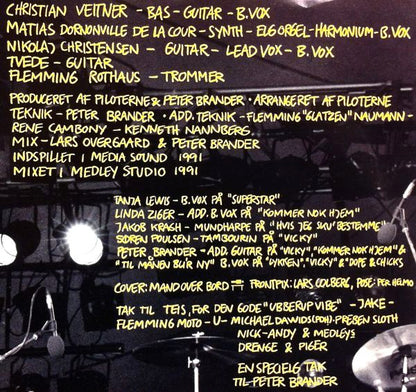 CHRISTIAN VEITNER - BAS - GUITAR - B.VOX
MATIAS DORNONVILLE DE LA COUR - SYNTH - ELGORGEL - HARMONIUM - B.VOX
NIKOLAJ CHRISTENSEN - GUITAR - LEAD VOX - B.VOX
TVEDE - GUITAR
FLEMMING ROTHAUS - TROMMER
PRODUCERET AF PILOTERNE & PETER BRANDER · ARRANGERET AF PILOTERNE
TEKNIK - PETER BRANDER · ADD. TEKNIK - FLEMMING "GLATZEN" NAUMANN -
RENE CAMBONY - KENNETH NANNBERG.
MIX - LARS OVERGAARD & PETER BRANDER
INDSPILLET I MEDIA SOUND 1991
MIXET I MEDLEY STUDIO 1991
TANJA LEWIS - B.VOX PÅ "SUPERSTAR"
LINDA ZIGER - ADD. B.VOX PÅ "KOMMER NOK HJEM"
JAKOB KRAGH - MUNDHARPE PÅ "HVIS JEG SKU' BESTEMME"
SØREN POULSEN - TAMBOURIN PÅ "VICKY"
PETER BRANDER - ADD. GUITAR PÅ "VICKY", "KOMMER NOK HJEM" &
"TIL MÅNEN BLI'R NY" B.VOX PÅ "LYKKEN", "VICKY" & "DOPE & CHICKS
COVER: MAND OVER BORD FRONTPIX: LARS COLBERG, POSE: PER HELMO
TAK TIL TEIS, FOR DEN GODE "UBBERUP VIBE" - JAKE -
FLEMMING MOTO - U - MICHAEL DAWIDS(PDH) - PREBEN SLOTH
NICK - ANDY & MEDLEYS
DRENGE & PIGER
EN SPECIEL TAK
TIL PETER BRANDER